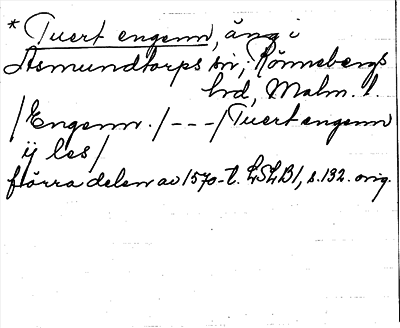 * Tuert engenn, äng i
Asmundtorps sn, Rönnebergs
hd, Malm. l.
/Engenn./---/Tuert engenn
ij les/
förra delen av 1570-t. LSLB1, s.132. orig.